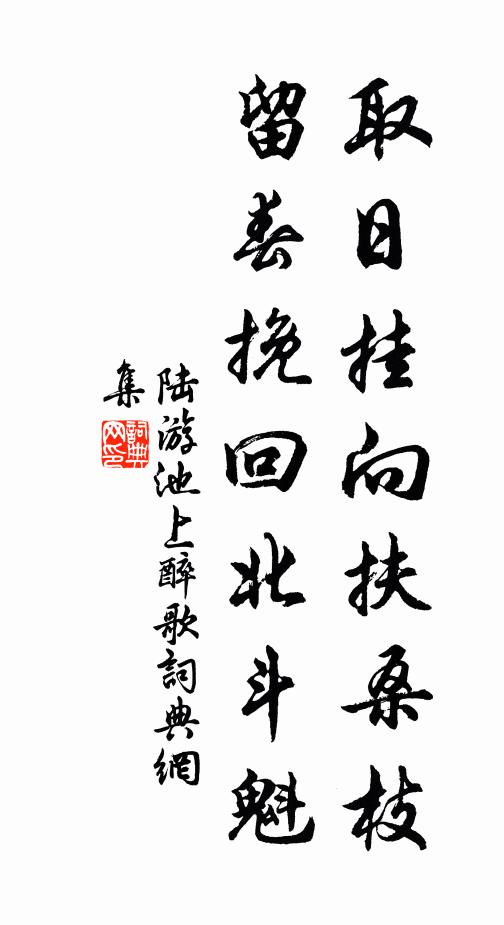 取日挂向扶桑枝
留春挽回北斗魁
陆游池上醉歌詞典網
集
詞典网印